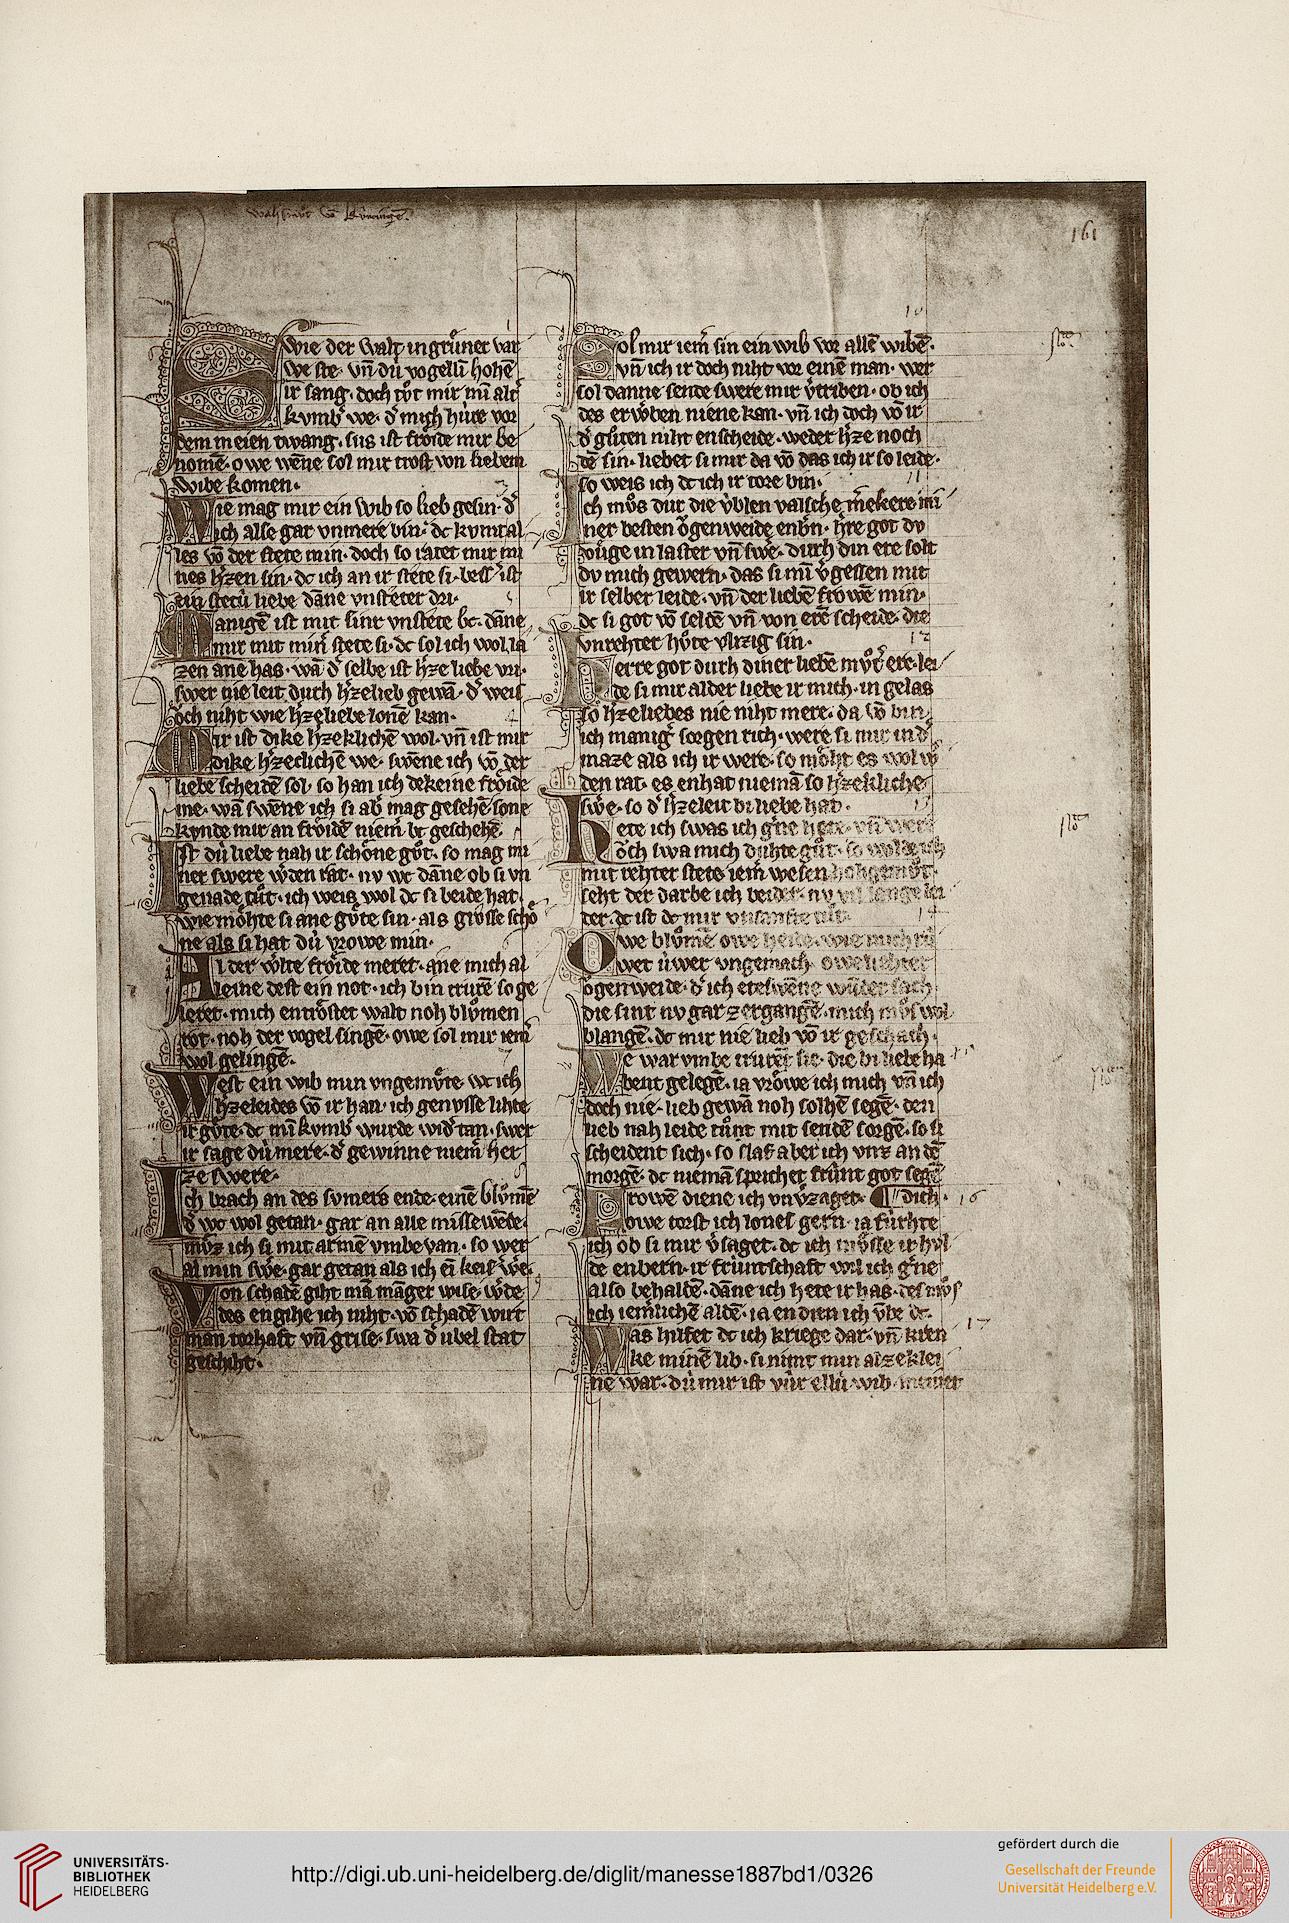 161
Swie der walt in grůner var
we ste· vn̄ dú vogellú hohē
ir sang· doch tŏt mir mī alt᷑
kvmb᷑ we· d᷑ mich húre vor
dem meien twang· sus ist frŏide mir be
nomē· owe wēne sol mir trost von liebem
wibe komen·
Wie mag mir ein wib so lieb gesin· d᷑
ich alse gar vnmere bin· dc kvmt al
les vō der stete min· doch so ratet mir mi
nes h᷑zen sin· dc ich an ir stete si· bess᷑ ist
ein stetú liebe dāne vnsteter dri·
Manigē ist mit sint vnstete bc· dāne
mir mit min᷑ stete si· dc sol ich wol la
zen ane has· wā d᷑ selbe ist h᷑ze liebe vri·
swer nie leit durch h᷑zelieb gewā· d᷑ weis
ŏch niht wie h᷑zeliebe lonē kan·
Mir ist dike h᷑zeklichē wol· vn̄ ist mir
dike h᷑zeclichē we· swēne ich vō der
liebe scheidē sol· so han ich dekeine frŏide
me· wā swēne ich si ab᷑ mag gesehē sone
kvnde mir an frŏidē niem᷑ bc geschehē
Ist dú liebe nah ir schŏne gůt· so mag mi
ner swere w᷑den rat· nv wc dāne ob si vn
genade tůt· ich weis wol dc si beide hat·
wie mŏhte si ane gůte sin· als grosse schŏ
ne als si hat dú vrowe min·
Al der w᷑lte frŏide meret· ane mich al
leine dest ein not· ich bin trurē so ge
leret· mich entrŏstet walt noh blůmen
rot· noh der vogel singē· owe sol mir iem᷑
wol gelingē·
West ein wib min vngemůte wc ich
h᷑zeleides vō ir han· ich genvsse lihte
ir gůte· dc mī kvmb᷑ wurde wid᷑ tan· swer
ir sage dú mere· d᷑ gewinne niem᷑ her
ze swere·
Ich brach an des svmers ende· einē blůmē
d᷑ wc wol getan· gar an alle missewēde·
můz ich si mit armē vmbevan· so wer
al min sw᷑e· gar getan als ich ei keis᷑ w᷑e·
Von schadē giht mā māger wise w᷑de
des engihe ich niht· vō schadē wirt
man torhaft vn̄ grise· swa d᷑ ubel stat
geschiht·
10
Sol mir iem᷑ sin ein wib vor allē wibē·
vn̄ ich ir doch niht vor einē man· wer
sol danne sende swere mir v᷑triben· ob ich
des erw᷑ben niene kan· vn̄ ich doch vō ir
d᷑ gůten niht enscheide· weder h᷑ze noch
dē sin· liebet si mir da vō das ich ir so leide·
so weis ich dc ich ir tore bin·
11
Ich můs dur die v́blen valsche m᷑ekere mi
ner besten ŏgenweide enb᷑n· h᷑re got dv
vůge in laster vn̄ sw᷑e· durch din ere solt
dv mich gewern· das si mī v᷑gessen mit
ir selber leide· vn̄ der liebē frŏwē min·
dc si got vō seldē vn̄ von erē scheide· die
vnrehter hůte vlizig sin·
12
Herre got durh diner liebē můt᷑ ere· lei
de si mir alder liebe ir mich· in gelas
so h᷑zeliebes nie niht mere· da vō bin
ich manig᷑ sorgen rich· were si mir in d᷑
maze als ich ir were· so mŏht es wol w᷑
den rat· es enhat niemā so h᷑zekliche
sw᷑e· so d᷑ h᷑zeleit bi liebe hat·
13
Hete ich swas ich g᷑ne hete· vn̄ were
ŏch swa mich duhte gůt· so wolde ich
mit rehter stete iem᷑ wesen hohgemůt·
seht der darbe ich beider· nv vil lange lei
der· dc ist dc mir vnsanfte tůt·
14
Owe blůmē owe heide· wie mich rú
wet úwer vngemach· owe liehter
ŏgenweide· d᷑ ich eteswēne wūder sach·
die sint nv gar zergangē· mich můs wol
blangē· dc mir nie lieb vō ir geschach·
15
We war vmbe trurēt sie· die bi liebe ha
bent gelegē· ia vrŏwe ich mich vn̄ ich
doch nie· lieb gewā noh solhē segē· den
lieb nah leide tůnt mit sendē sorgē· so si
scheident sich· so slaf aber ich vnz an dē
morgē· dc niemā sprichet frúnt got segē
dich· 16
Frowē diene ich vnv᷑zaget·
owe torst ich lones gern· ia fúrhte
ich ob si mir v᷑saget· dc ich můsse ir hvl
de enbern· ir frúntschaft wil ich g᷑ne
also behaltē· dāne ich hete ir has· des můs
ich iem᷑lichē aldē· ia en dien ich v᷑be dc·
17
Was hilfet dc ich kriege dar· vn̄ kren
ke minē lib· si nimt min alze klei
ne war· dú mir ist vúr ellú wib· miner
UNIVERSITÄTS-
BIBLIOTHEK
HEIDELBERG
http://digi.ub.uni-heidelberg.de/diglit/manesse1887bd1/0326
gefördert durch die
Gesellschaft der Freunde
Universität Heidelberg e.V.